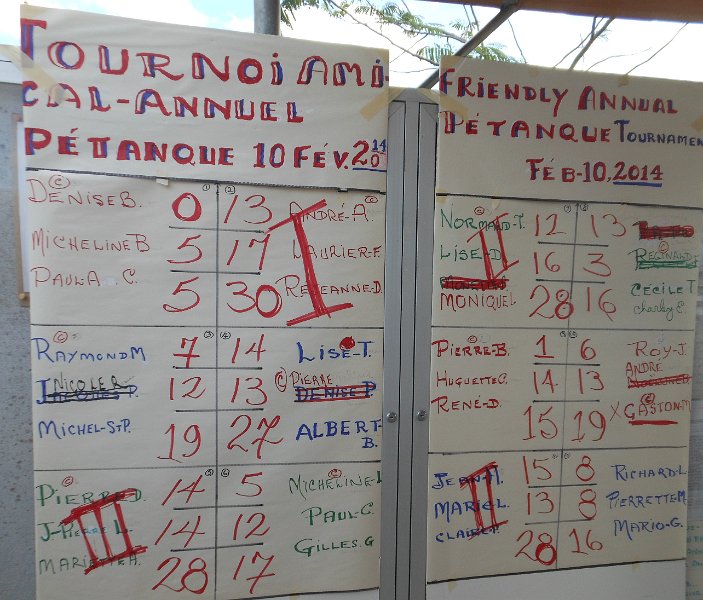 TOURNOI AMI-
CAL-ANNUEL
PÉTANQUE 10 FÉV. 2014
DENISE B. 0 13 ANDRÉ-A.
MICHELINE B 5 17 LAURIER-F.
PAUL A. C. 5 30 REJEANNE-D.
I
RAYMOND M 7 14 LISE-T.
NICOLE R 12 13 PIERRE P.
MICHEL-ST P. 19 27 ALBERT B.
PIERRE D. 14 5 MICHELINE-L
J-PIERRE L. 14 12 PAUL-C.
MARIETTE A. 28 17 GILLES.G
III
FRIENDLY ANNUAL
PÉTANQUE TOURNAMEN
FÉB-10.2014
NORMAND-T. 12 13
LISE-D 16 3 REGINALD
MONIQUE L 28 16 CECILE T
charley E.
II
PIERRE-B. 1 6 ROY-J.
HUGUETTE C. 14 13 ANDRÉ
RENÉ-D. 15 19 X GASTON-M
JEAN-H. 15 8 RICHARD-L.
MARIE L 13 8 PIERRETTE M.
CLAUDE P. 28 16 MARIO-G.
II